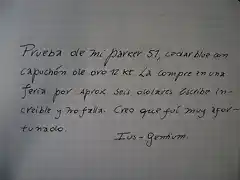 Prueba de mi parker 51, cedar blue con
capuchón de oro 12 kt. La compre en una
feria por aprox. seis dolares. Escribe in-
creible y no falla. Creo que fui muy afor-
tunado.
Ius-Gentium.